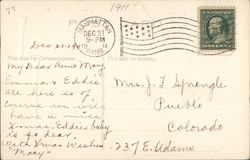 75
1911
MANHATTAN
DEC 21
9-PM
KANS.
Dec 21-1911
This side for Correspondence
This side for Address
My Dear Aunt May.
Emma & Eddie
are here so of
course we will
have a nice
Xmas. Eddie baby
is so dear.
With Xmas Wishes
"Mary"
Mrs. J. F. Sprengle
Pueblo
Colorado
237 E. Adams